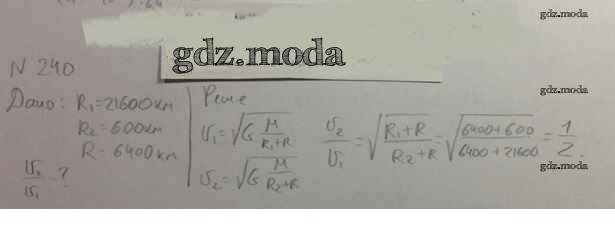 gdz.moda
gdz.moda
N 240
gdz.moda
Дано: R₁=21600км
R₂=600км
R=6400км
υ₂/υ₁ - ?
Реше
υ₁=√(G M/(R₁+R))
υ₂=√(G M/(R₂+R))
υ₂/υ₁=√((R₁+R)/(R₂+R))=√((6400+600)/(6400+21600))=1/2.
gdz.moda
gdz.moda